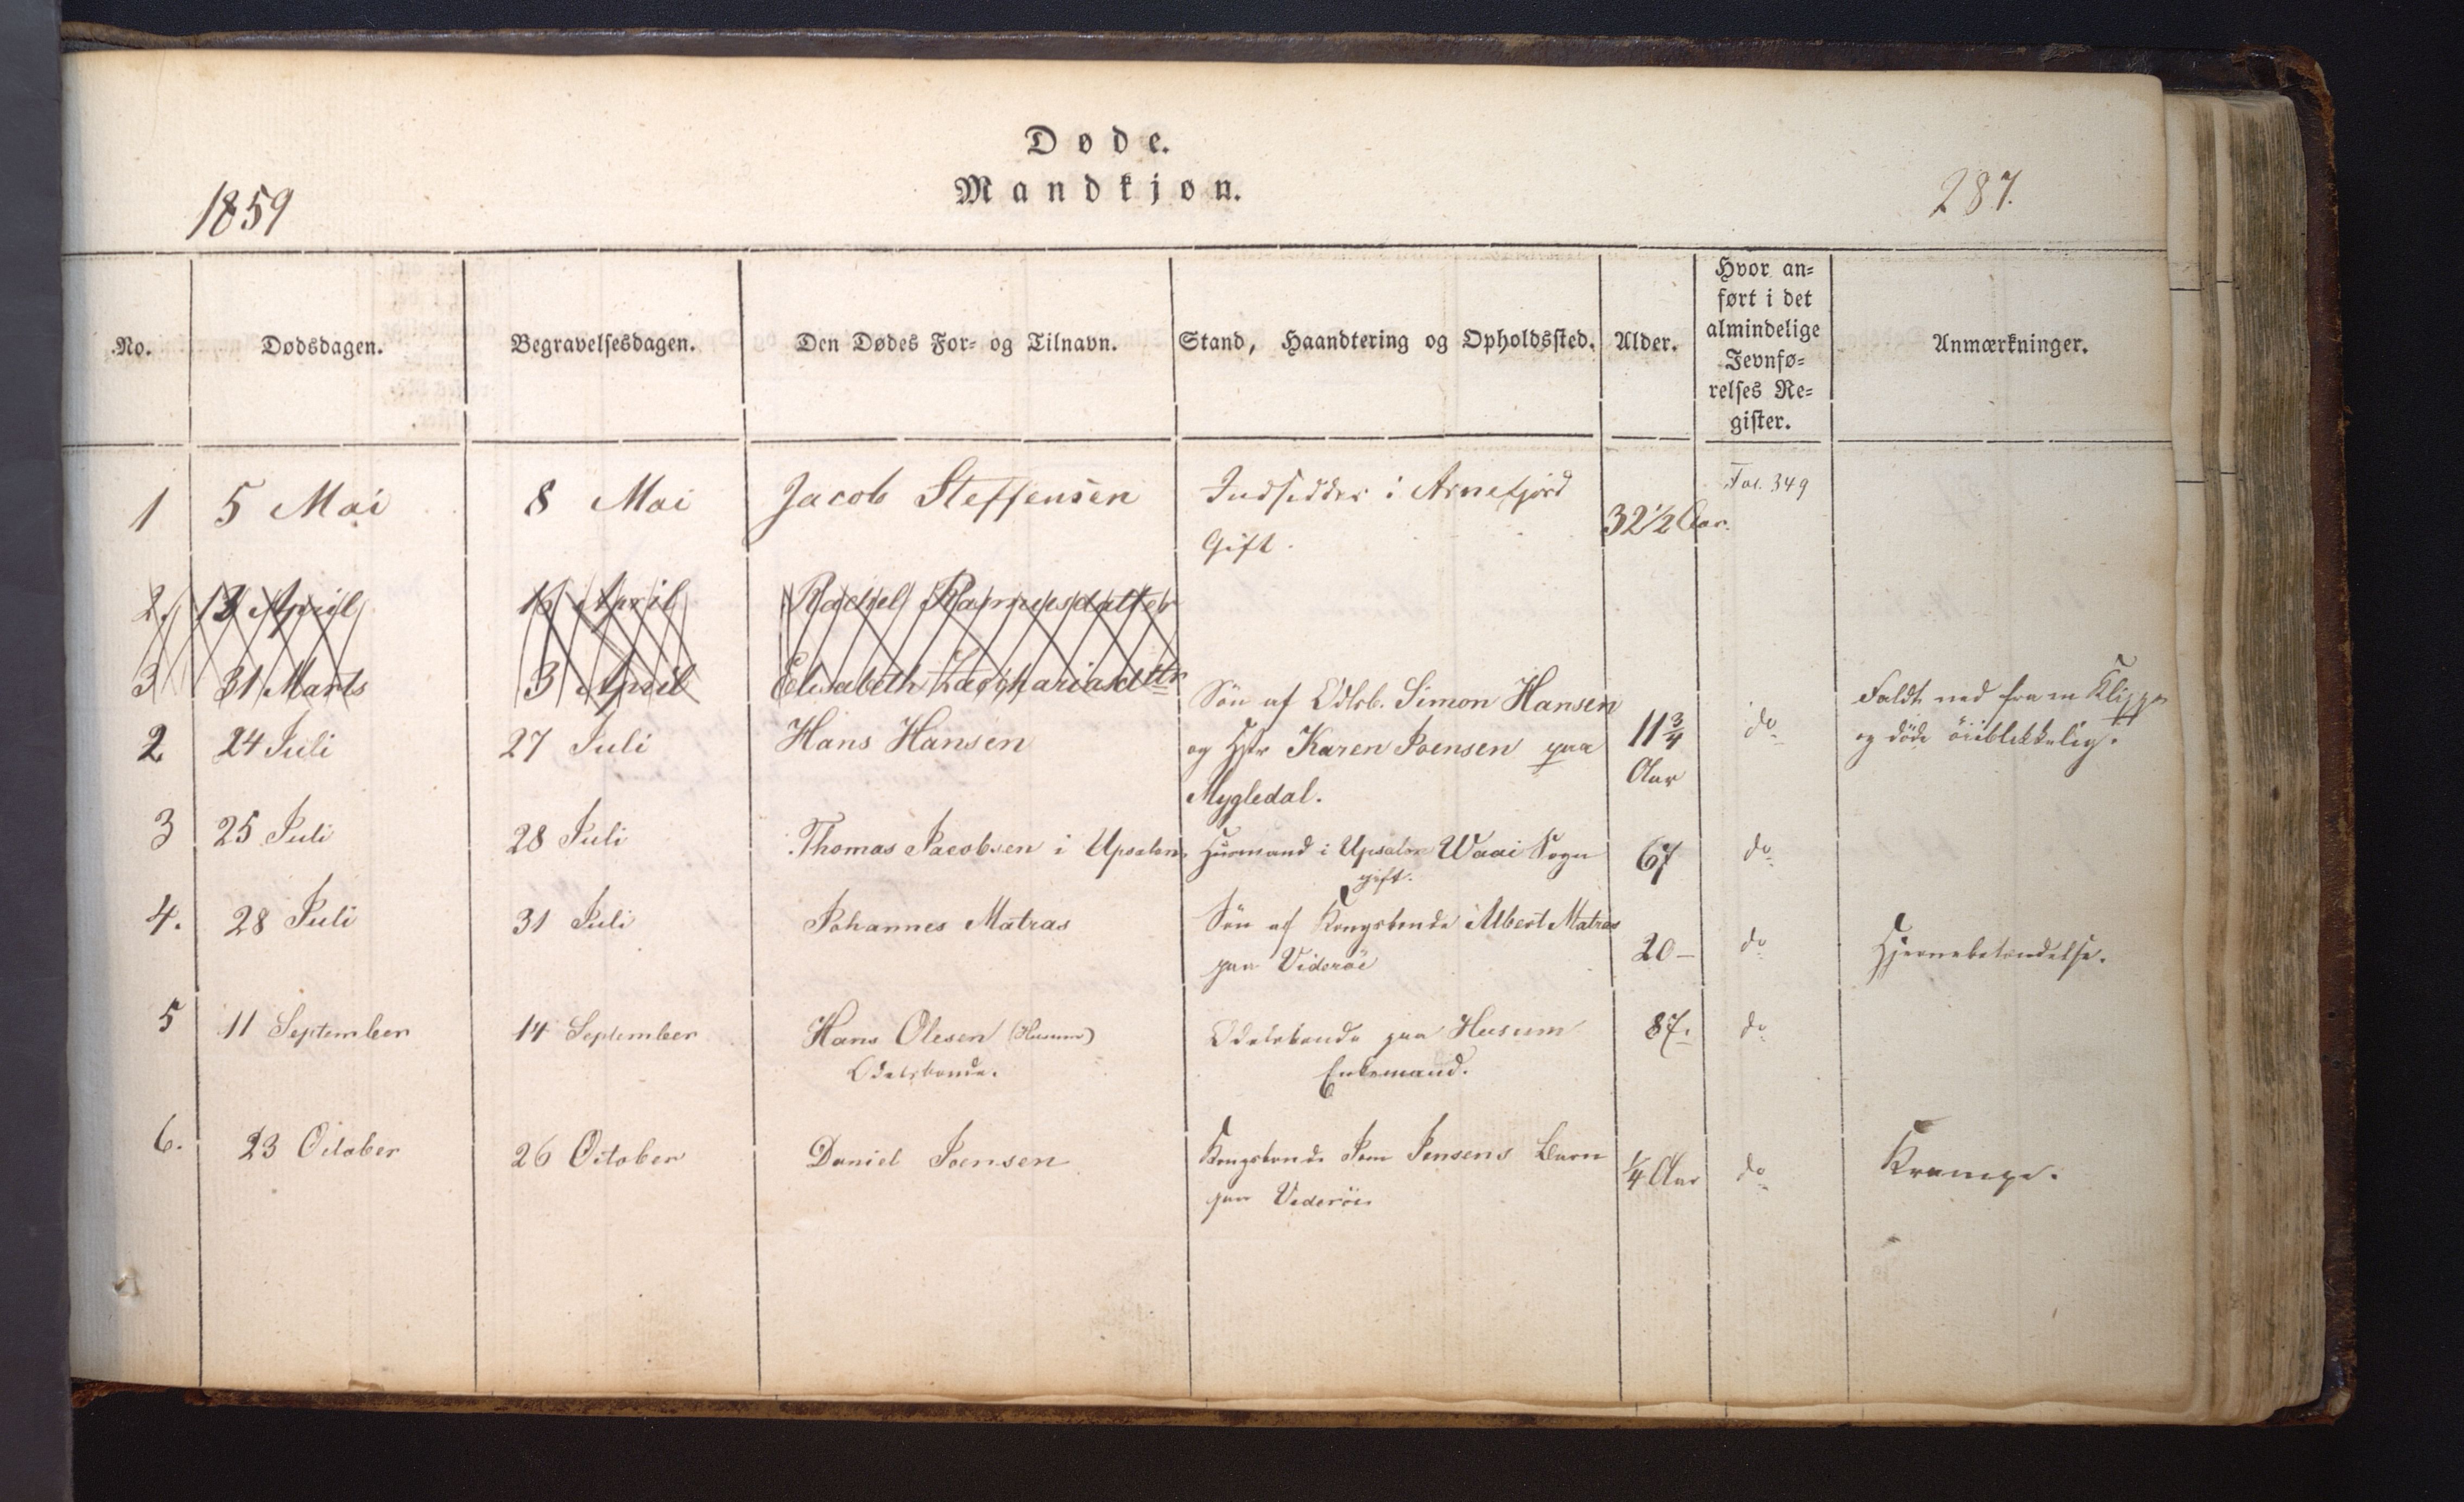 Døde.
Mandkjøn.
1859
287.
No.
Dødsdagen.
Begravelsesdagen.
Den Dødes For- og Tilnavn.
Stand, Haandtering og Opholdssted.
Alder.
Hvor an-
ført i det
almindelige
Jevnfø-
relses Re-
gister.
Anmærkninger.
1 5 Mai 8 Mai Jacob Steffensen Indsidder i Arnefjord 32 1/2 Aar. Fol. 349
Gift.
2. 13 April 16 April Rachel Rasmusdatter
3 31 Marts 3 April Elisabeth Zachariasdttr
Søn af Odlsb. Simon Hansen
Faldt ned fra en Klippe
2 24 Juli 27 Juli Hans Hansen og Hstr Karen Joensen paa 11 3/4 do og döde öieblikkelig.
Aar
Mygledal.
3 25 Juli 28 Juli Thomas Jacobsen i Upsalon. Huusmand i Upsalon Waai Sogn 67 do
gift.
4. 28 Juli 31 Juli Johannes Matras Søn af Kongsbonde Albert Matras
paa Viderøi 20 – do Hjernebetændelse.
5 11 September 14 September Hans Olesen (Husum) Odelsbonde paa Husum 87. do
Odelsbonde. Enkemand.
6. 23 October 26 October Daniel Joensen Kongsbonde Joen Jensens Barn 1/4 Aar do Krampe.
paa Viderøi